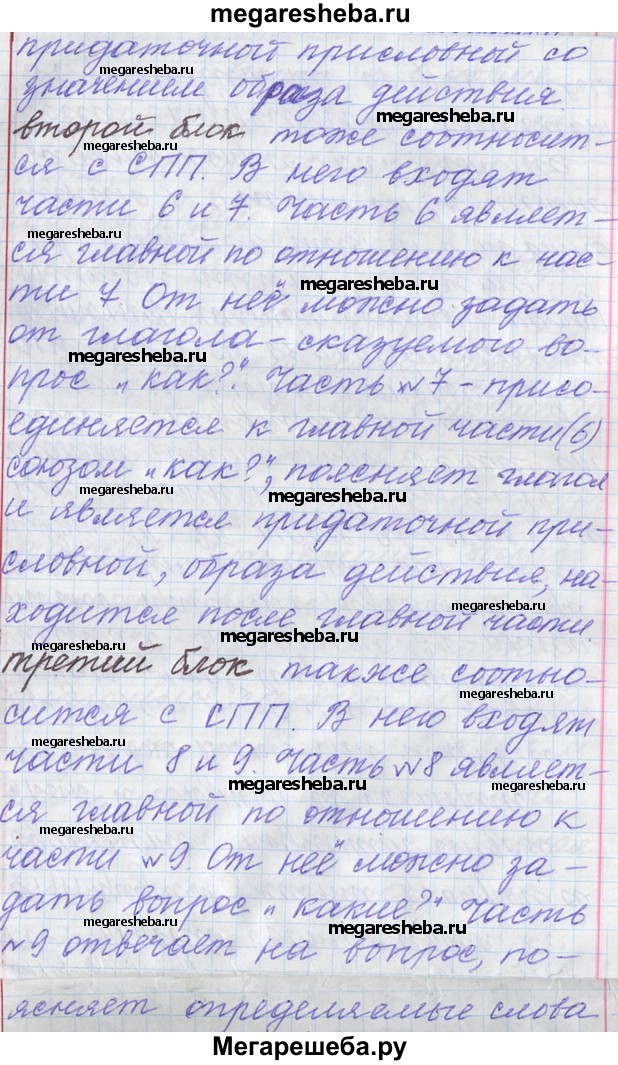 megaresheba.ru
придаточной присловной со
megaresheba.ru
значением образа действия.
megaresheba.ru
второй блок тоже соотносит-
megaresheba.ru
ся с СПП. В него входят
части 6 и 7. Часть 6 являет-
megaresheba.ru
ся главной по отношению к час-
megaresheba.ru
ти 7. От неё можно задать
от глагола-сказуемого во-
megaresheba.ru
прос „как?". Часть №7 - присо-
единяется к главной части(6)
союзом „как?", поясняет глагол
megaresheba.ru
megaresheba.ru
и является придаточной при-
словной, образа действия, на-
megaresheba.ru
ходится после главной части.
megaresheba.ru
третий блок также соотно-
megaresheba.ru
сится с СПП. В него входят
megaresheba.ru
части 8 и 9. Часть №8 являет-
megaresheba.ru
ся главной по отношению к
megaresheba.ru
части №9. От неё можно за-
дать вопрос „какие?" Часть
megaresheba.ru
megaresheba.ru
№9 отвечает на вопрос, по-
ясняет определяемые слова
Мегарешеба.ру